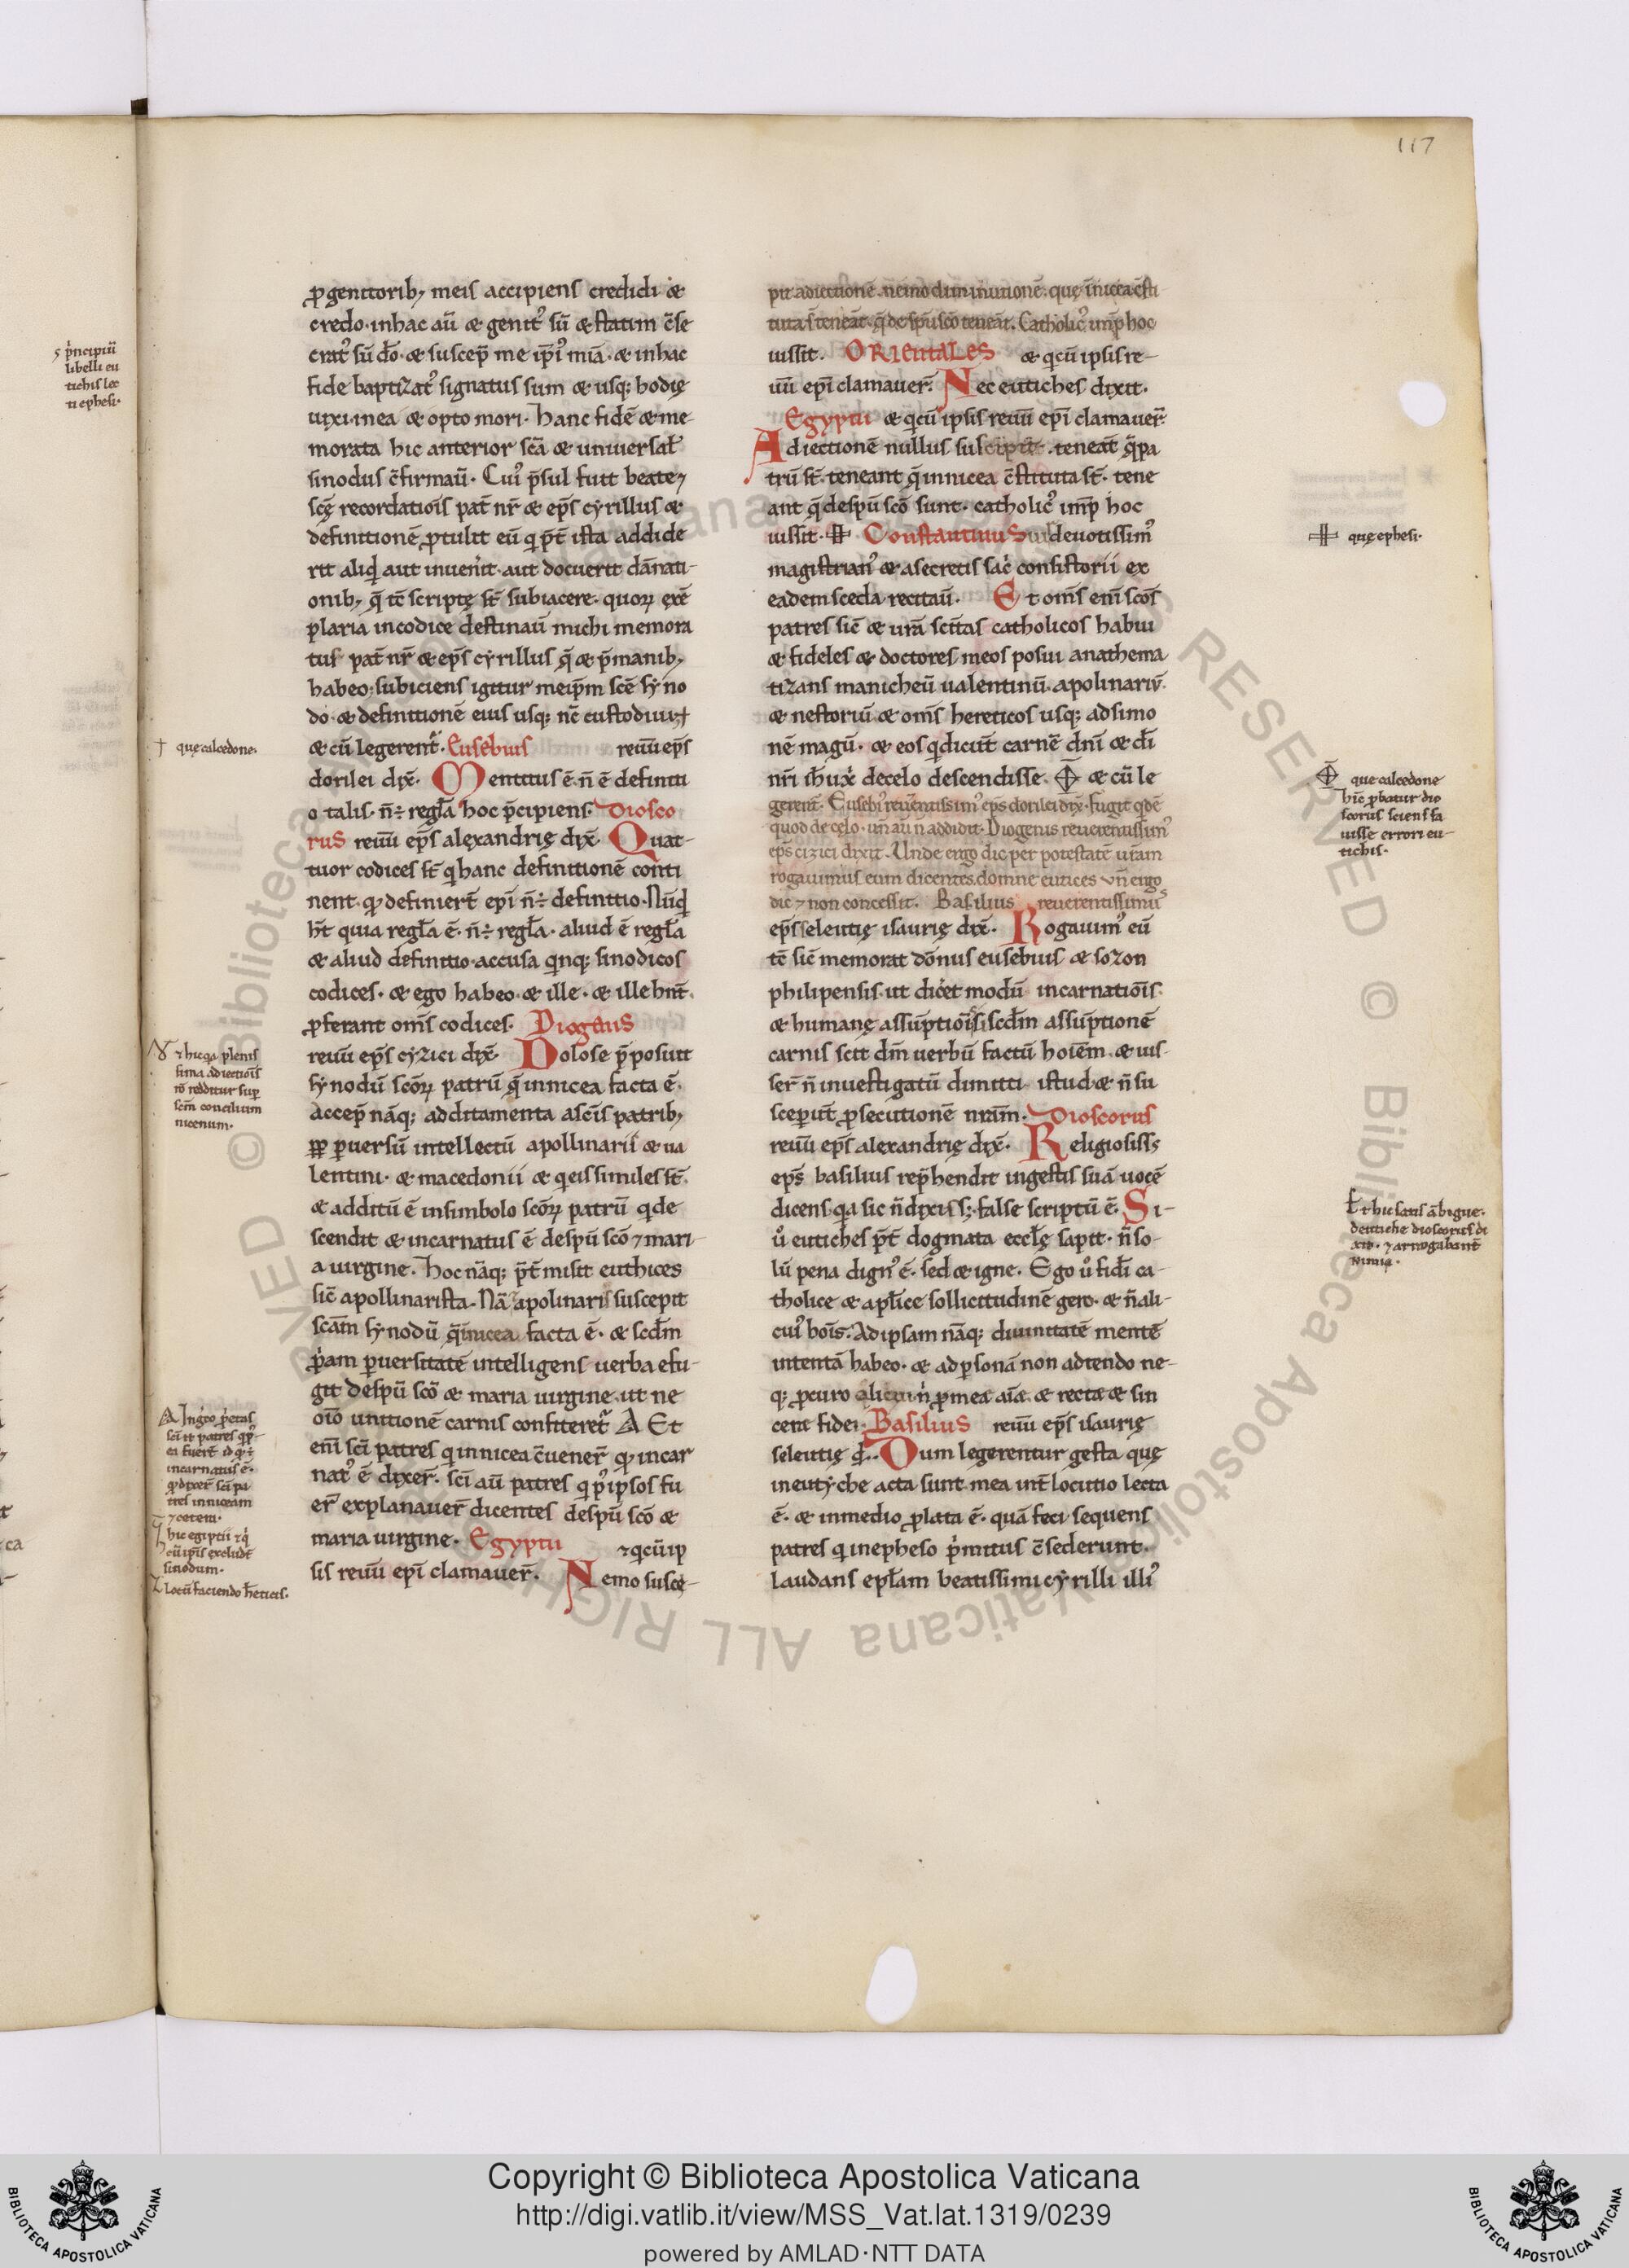 117
ꝓgenitorib; meis accipiens credidi &
credo. in hac aū & genit᾽ sū & statim c̄se
crat᾽ sū dō. & suscep̄ me ip̄i᾽ mīa. & in hac
fide baptizat᾽ signatus sum & usq; hodię
uixi. in ea & opto mori. Hanc fidē & me-
morata hic anterior sc̄a & uniuersal̄
sinodus c̄firmaū. Cui᾽ p̄sul fuit beate ⁊
sc̄ę recordatiōis pat̄ nr̄ & ep̄s cyrillus &
definitionē ꝓtulit eū q̄ p̄t ista addide
rit aliqd aut inuenit. aut docuerit dānati-
onib; q̄ tc̄ scriptę st̄ subiacere. quoꝝ exē
plaria in codice destinaū michi memora
tus pat̄ nr̄ & ep̄s cyrillus q̄ & p̄ manib;
habeo. subiciens igitur meip̄m sc̄e syno
do. & definitionē eius usq; nc̄ custodiui †
& cū legerent᾽. Eusebius reuū ep̄s
dorilei dix̄. Mentitus ē. n̄ ē definiti
o talis. n̄ ÷ regl̄a hoc p̄cipiens. Diosco
rus reuū ep̄s alexandrię dix̄. Quat-
tuor codices st̄ q̄ hanc definitionē conti
nent. qd definiert̄ ep̄i n̄ ÷ definitio. Nūqd
h̄t quia regl̄a ē. n̄ ÷ regl̄a. aliud ē regl̄a
& aliud definitio. accusa qinq; sinodicos
codices. & ego habeo. & ille. & ille hn̄t.
ꝓferant om̄s codices. Diogenus
reuū ep̄s cyzici dix̄. Dolose p̄posuit
synodū scōꝝ patrū q̄ in nicea facta ē.
accep̄ nāq; additamenta a sc̄is patrib;
ꝓꝑ ꝑuersū intellectū apollinarii & ua
lentini. & macedonii & q̄ eis similes st̄.
& additū ē in simbolo scōꝝ patrū q̄ de
scendit & incarnatus ē de spū scō ⁊ mari-
a uirgine. Hoc nāq; p̄t misit euthices
sic̄ apollinarista. Nā apolinaris suscepit
scām synodū q̄ in nicea facta ē. & scd̄m
ꝓp̄am ꝑuersitatē intelligens uerba efu-
git de spū scō & maria uirgine. ut ne
oīo unitionē carnis confiteret᾽ A Et
enī sc̄i patres q̄ in nicea c̄uener̄ qd incar
nat᾽ ē dixer̄. sc̄i aū patres q̄ p᾽ ipsos fu
er̄ explanauer̄ dicentes de spū scō &
maria uirgine. Egyptii ⁊ q̄ cū ip
sis reuū ep̄i clamauer̄. Nemo susce-
pit adiectionē. nemo diminutionē. quę in nicea c̄sti
tuta st̄ teneāt. q̄ de spū scō teneāt. Catholic᾽ imp̄ hoc
iussit. ORIENTALES & q̄ cū ipsis re-
uū ep̄i clamauer̄. Nec eutiches dixit.
Egyptii & q̄ cū ipsis reuū ep̄i clamauer̄.
Adiectionē nullus suscipiet. teneāt q̄ pa
trū st̄. teneant q̄ in nicea c̄stituta st̄. tene
ant q̄ de spū scō sunt. catholic᾽ imp̄ hoc
iussit. ⋕ Constantinus deuotissim᾽
magistrian᾽ & a secretis sac̄ consistorii ex
eadem sceda recitaū. Et om̄s enī scōs
patres sic̄ & urā sc̄itas catholicos habui
& fideles & doctores meos posui anathema
tizans manicheū ualentinū. apolinariū.
& nestoriū & om̄s hereticos usq; ad simo
nē magū. & eos q̄ dicūt carnē dn̄i & d̄i
nr̄i ih̄u xp̄i de celo descendisse. & cū le
gerent᾽. Eusebi᾽ reuerentissim᾽ ep̄s dorilei dix̄. fugit qd̄ē
quod de celo. un̄ aū n̄ addidit. Diogenus reuerentissim᾽
ep̄s cizici dixit. Unde ergo dic per potestatē urām
rogauimus eum dicentes. domne eutices un̄ ergo
dic ⁊ non concessit. Basilius reuerentissimus
ep̄s seleutię isaurię dix̄. Rogauim᾽ eū
tc̄ sic̄ memorat dōnus eusebius & sozon
philipensis. ut dicet modū incarnatiōis.
& humanę assūptiōis. scd̄m assūptionē
carnis scit dm̄ uerbū factū hoīem. & uis-
ser̄ n̄ inuestigatū dimitti. istud & n̄ su
sceper̄t ꝓsecutionē nr̄am. Dioscorus
reuū ep̄s alexandrię dix̄. Religiosiss;
ep̄s basilius rep̄hendit in gestis suā uocē
dicens. qa sic n̄ dixiss;. false scriptū ē. Si-
ů eutiches p̄t dogmata eccl̄ę sapit. n̄ so-
lū pena dign᾽ ē. sed & igne. Ego ů fid̄i ca-
tholice & apl̄ice sollicitudinē gero. & n̄ ali-
cui᾽ hoīs. Ad ipsam nāq; diuinitatē mentē
intentā habeo. & ad ꝑsonā non adtendo ne-
q; ꝓcuro alicui n̄ ꝓ mea aīa. & recta & sin
cera fidei. Basilius reuū ep̄s isaurię
seleutię d̄. Dum legerentur gesta quę
in eutyche acta sunt. mea int̄ locutio lecta
ē. & in medio ꝓlata ē. quā feci sequens
patres q̄ in epheso p̄mitus c̄sederunt.
Laudans epl̄am beatissimi cyrilli illi᾽
p̄ncipiū
libelli eu
tichis lec
ti ephesi.
† quę calcedone.
⁊ hic qa plenis
sima adiectiōis
rō redditur sup̄
scm̄ concilium
nicenum.
A In gr̄co
sc̄i
incarnatus ē.
qd dixer̄ sc̄i pa
tres in niceam
⁊ cetera.
hic egiptii ⁊ q̄
cū ip̄is excludt̄
sinodum.
locū faciendo hēticis.
⋕ quę ephesi.
que calcedone
hīc ꝓbatur dio
scorus sciens fa
uisse errori eu-
tichis.
Et hic satis ābigue.
de utiche dioscorus di
xit. ⁊ arrogabant̄
nimia.
Copyright © Biblioteca Apostolica Vaticana
http://digi.vatlib.it/view/MSS_Vat.lat.1319/0239
powered by AMLAD·NTT DATA
BIBLIOTECA APOSTOLICA VATICANA
BIBLIOTECA APOSTOLICA VATICANA